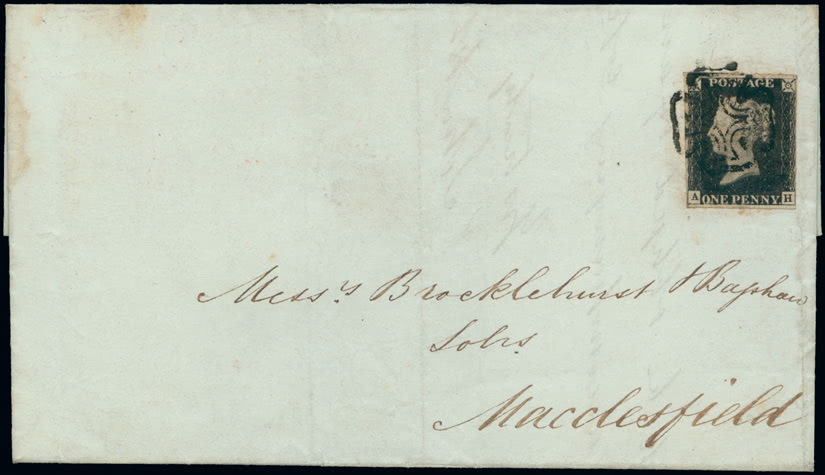 POSTAGE
A ONE PENNY H
Mess.rs Brocklehurst & Bagshaw
Solrs
Macclesfield